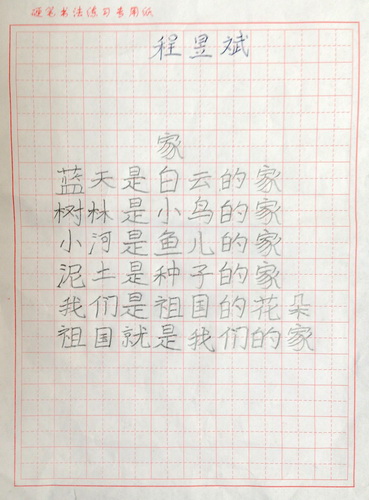 硬笔书法练习专用纸
程昱斌
家
蓝天是白云的家
树林是小鸟的家
小河是鱼儿的家
泥土是种子的家
我们是祖国的花朵
祖国就是我们的家